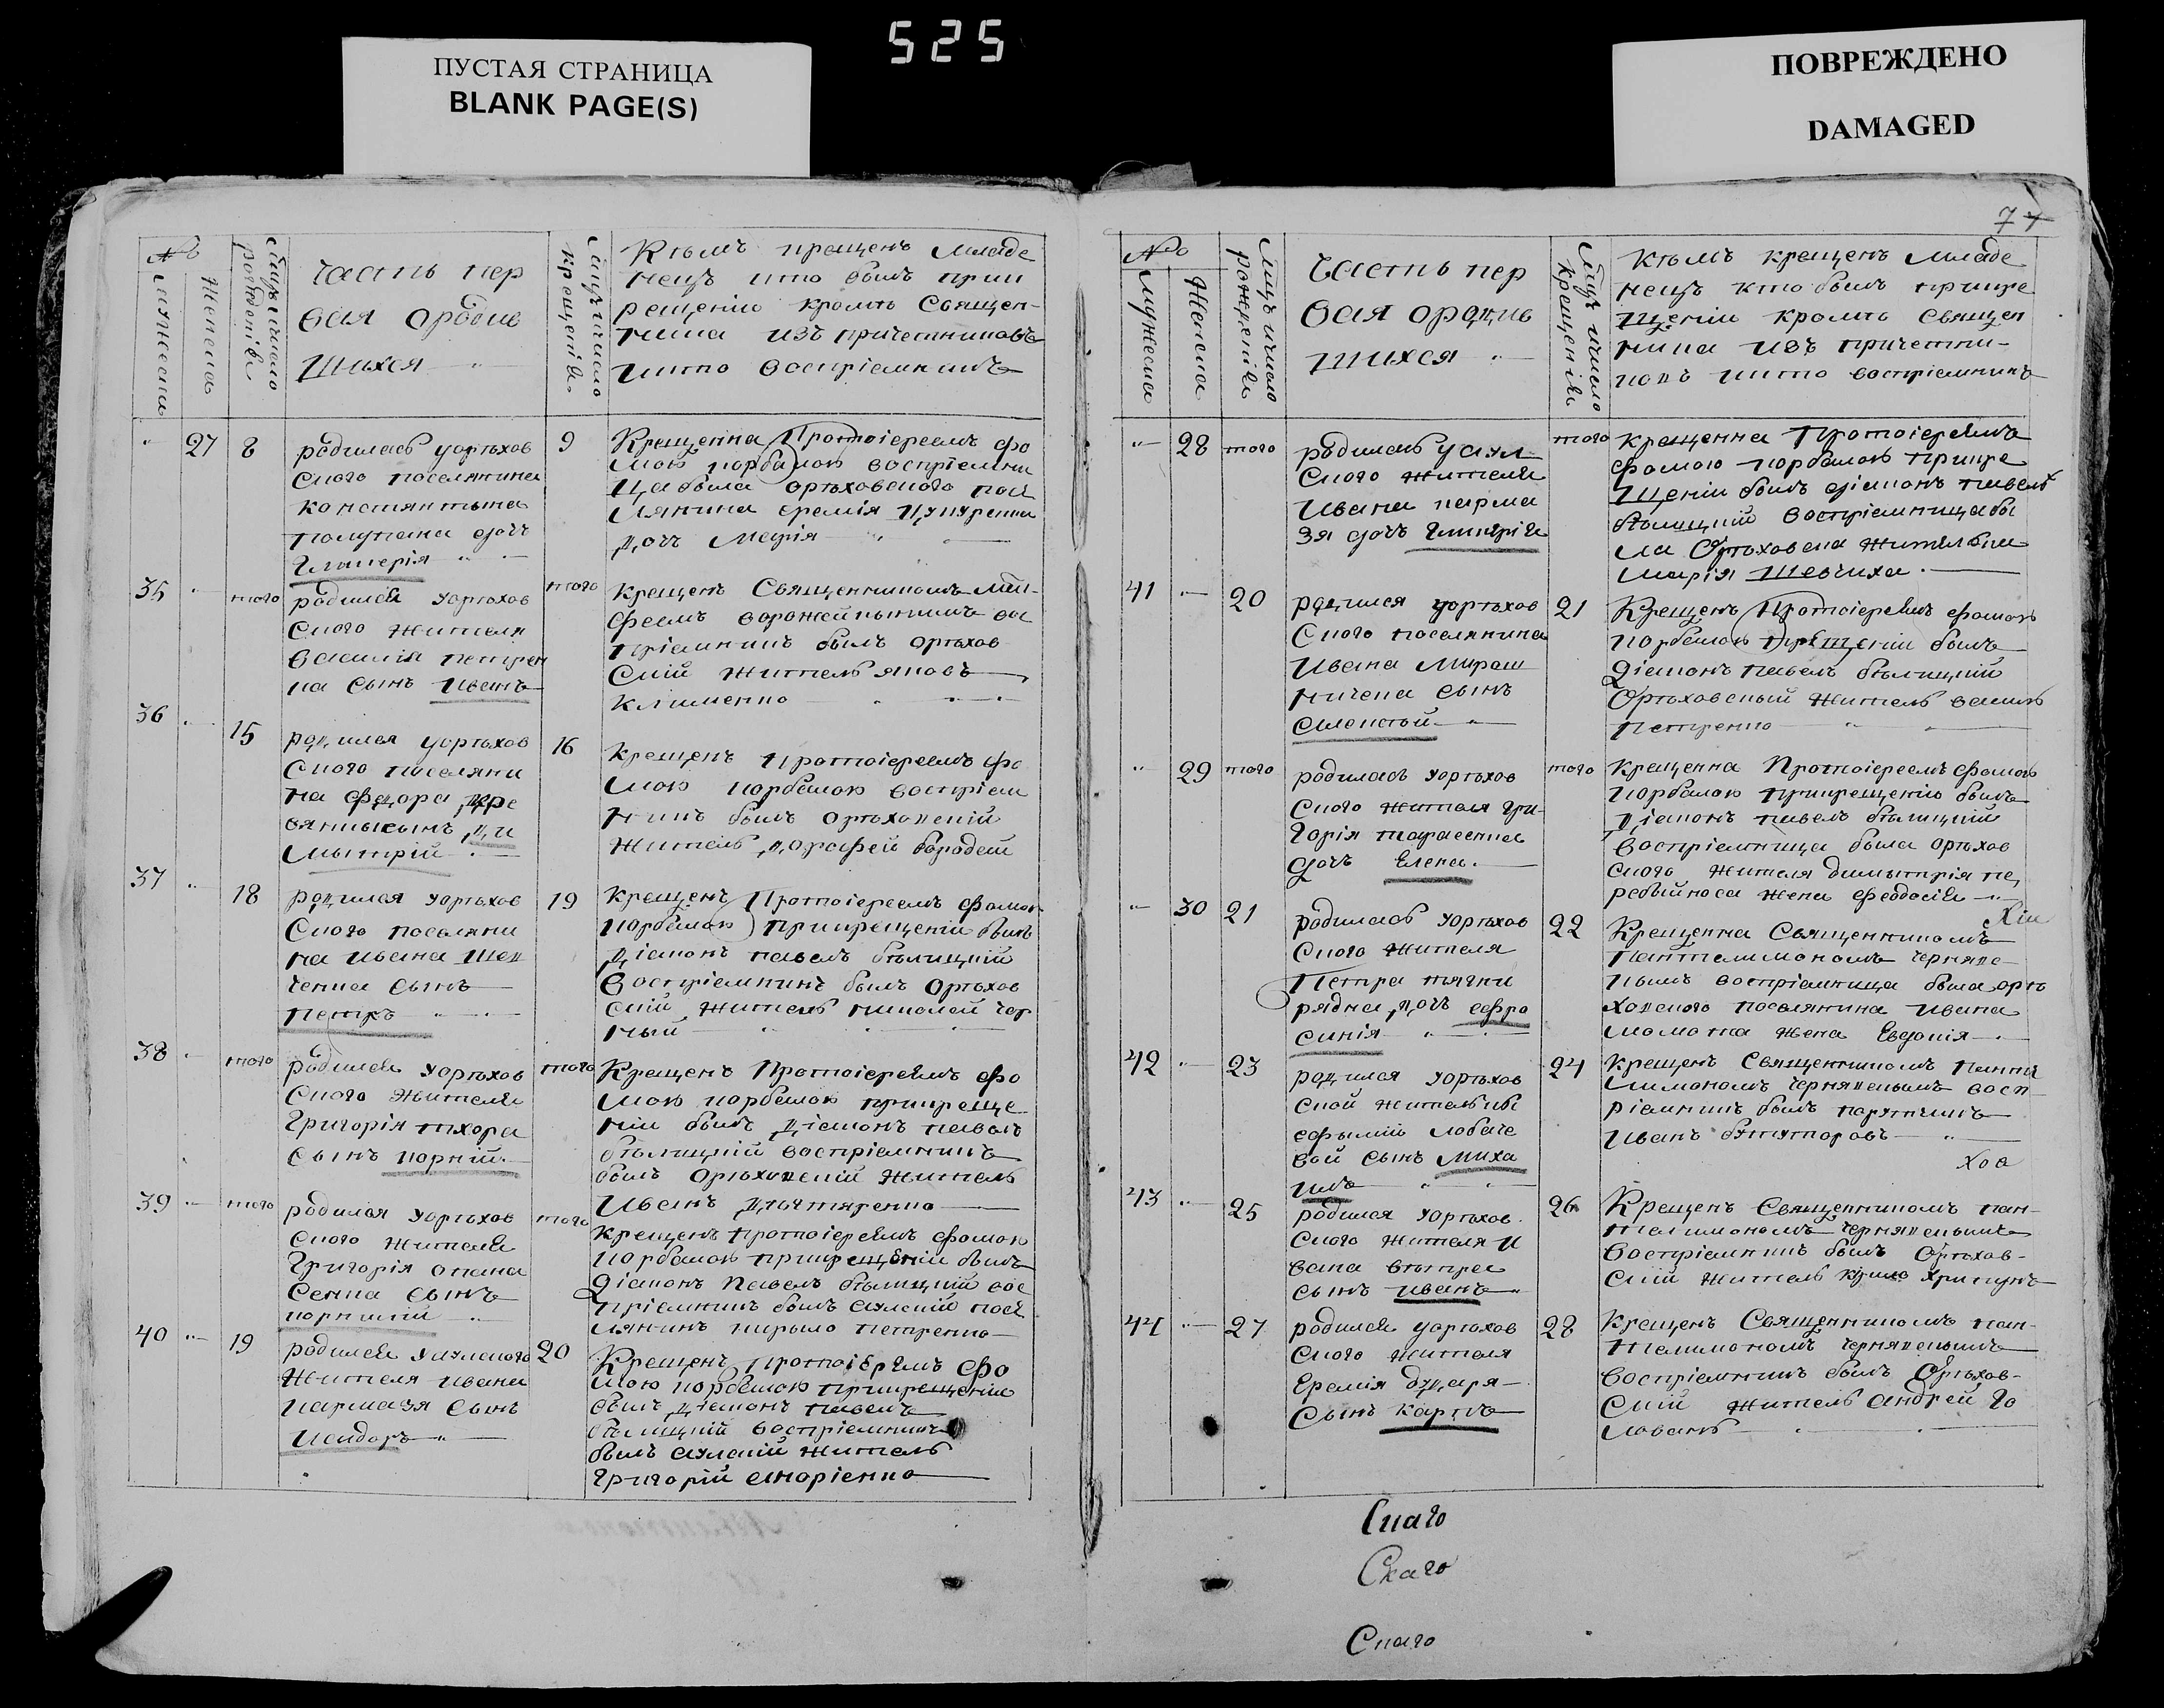 525
ПУСТАЯ СТРАНИЦА
BLANK PAGE(S)
ПОВРЕЖДЕНО
DAMAGED
№
Мужеска
Женска
Часть пер
вая ородив
шихся
крещенія
Кѣмъ крещенъ младе
нецъ кто былъ при к
рещеніи кромѣ Священ-
ника изъ причетниковъ
и кто воспріемникъ
27
8
родилась уорѣхов
ского поселянина
константина
дочь
9
Крещенна Протоіереемъ фо
мою корбаюю воспріемни
ца была орѣховского посе
лянина еремія
дочь Марія
35
того
родился уорѣхов
ского жителя
василія петрен
ка сынъ иванъ
того
крещенъ Священникомъ
вос
пріемникъ былъ орѣхов
скій житель яковъ
клименко
36
15
родился уорѣхов
ского поселяни
на федора дере
вянкисынъ ди
мытрій
16
крещенъ протоіереемъ фо
мою корбаюю воспріем
никъ былъ орѣховскій
житель дорофей бородай
37
18
родился уорѣхов
ского поселяни
на ивана шев
ченка сынъ
петръ
19
крещенъ Протоіереемъ фомою
корбаюю прикрещеніи былъ
діаконъ павелъ бѣлицкій
воспріемникъ былъ орѣхов
скій житель николай чер
ный
38
того
родился уорѣхов
ского жителя
григорія тхора
сынъ корній
того
Крещенъ Протоіереемъ фо
мою корбаюю прикреще
ніи былъ діаконъ павелъ
бѣлицкій воспріемникъ
былъ орѣховскій житель
Иванъ дегтяренко
39
того
родился уорѣхов
ского жителя
григорія опана
сенка сынъ
корнилій
того
крещенъ протоіереемъ фомою
корбаюю прикрещеніи былъ
діаконъ Павелъ бѣлицкій вос
пріемникъ былъ аулскій посе
лянинъ кирыло петренко
40
19
родился уаулского
жителя ивана
кармазя сынъ
исидоръ
20
Крещенъ протоіереемъ фо
мою корбаюю прикрещеніи
былъ діаконъ павелъ
бѣлицкій воспріемникъ
былъ аулскій житель
григорій
77
№
Мужеска
Женска
Часть пер
вая ородив
шихся
крещенія
Кѣмъ крещенъ младе
нецъ кто былъ прикре
щеніи кромѣ священ
ника изъ причетни-
ковъ и кто воспріемникъ
28
того
родилась уаул
ского жителя
ивана карма
зя дочь гликерія
того
крещенна Протоіереемъ
фомою корбаюю прикре
щеніи былъ діаконъ павелъ
бѣлицкій воспріемница бы
ла Орѣховска жителька
марія Шевчиха
41
20
родился уорѣхов
ского поселянина
ивана Мираш
ниченка сынъ
21
Крещенъ Протоіереемъ фомою
корбаюю прикрещеніи былъ
діаконъ павелъ бѣлицкій
Орѣховскый житель
петренко
29
того
родилась уорѣхов
ского жителя гри-
горія тарасенка
дочь Елена
того
крещенна Протоіереемъ фомою
корбаюю прикрещеніи былъ
діаконъ павелъ бѣлицкій
воспріемница была орѣхов
ского жителя димытрія пе
ребыйноса жена феодосія
30
21
родилась уорѣхов
ского жителя
Петра
рядка дочь евфро
синія
22
Крещенна Священникомъ
Пантелимономъ чернявс-
кымъ воспріемница была орѣ
ховского поселянина ивана
момотка жена Евдокія
42
23
родился уорѣхов
ской жителькы
ефымій лобаче
вой сынъ миха
илъ
24
крещенъ Священникомъ панте
лимономъ чернявскымъ восп
ріемникъ былъ
иванъ
43
25
родился уорѣхов
ского жителя и
вана вѣтра
сынъ иванъ
26
Крещенъ Священникомъ пан-
телимономъ чернявскымъ
воспріемникъ былъ Орѣхов-
скій житель кірило хрипунъ
44
27
родился уорѣхов
ского жителя
Еремія бдчаря
Сынъ карпъ
28
крещенъ Священникомъ пан-
телимономъ чернявскымъ
воспріемникъ былъ Орѣхов-
скій житель андрей го
ловань
Скаго
Скаго
Скаго